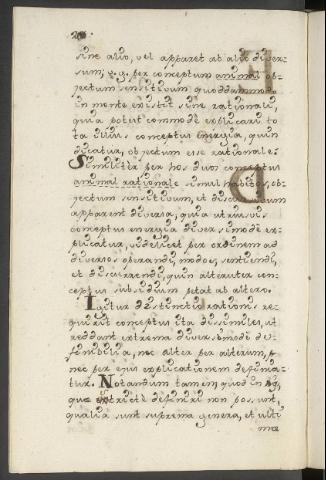 sine alio, vel apparet ab alio diver-
sum; v.g. per conceptum animal ob-
jectum sensitivum quoddammodo
in mente existit sine rationali,
quia potest commode explicari to-
ta illius conceptus energia, quin
dicatur, objectum esse rationale.
Similiter per hos duos conceptus
animal rationale simul habitos, ob-
jectum sensitivum, et discursivum
apparent diversa, quia utriusque
conceptus energia diversimode ex-
plicatur, videlicet per ordinem ad
diversos operandi modos, sentiendi,
et discurrendi, quin alteruter con-
ceptus subsidium petat ab altero.
Igitur distinctio rationis re-
quirit conceptus ita dissimiles, ut
reddant extrema diversimode de-
finibilia, nec alter per alterum,
nec per ejus explicationem definia-
tur. Notandum tamen quod ea,
quæ stricte definiri non possunt,
qualia sunt suprema genera, et ulti-
ma